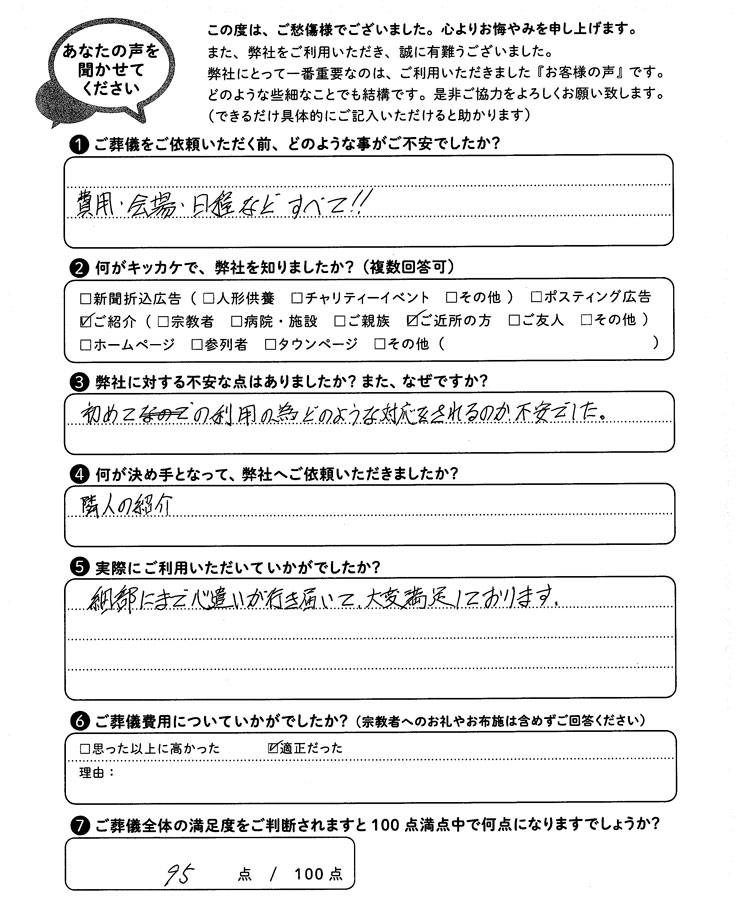 あなたの声を
聞かせて
ください
この度は、ご愁傷様でございました。心よりお悔やみを申し上げます。
また、弊社をご利用いただき、誠に有難うございました。
弊社にとって一番重要なのは、ご利用いただきました『お客様の声』です。
どのような些細なことでも結構です。是非ご協力をよろしくお願い致します。
（できるだけ具体的にご記入いただけると助かります）
❶ ご葬儀をご依頼いただく前、どのような事がご不安でしたか？
費用・会場・日程など すべて!!
❷ 何がキッカケで、弊社を知りましたか？（複数回答可）
□新聞折込広告（ □人形供養 □チャリティーイベント □その他 ） □ポスティング広告
☑ご紹介（ □宗教者 □病院・施設 □ご親族 ☑ご近所の方 □ご友人 □その他 ）
□ホームページ □参列者 □タウンページ □その他（ ）
❸ 弊社に対する不安な点はありましたか？また、なぜですか？
初めてなのでの利用の為どのような対応をされるのか不安でした。
❹ 何が決め手となって、弊社へご依頼いただきましたか？
隣人の紹介
❺ 実際にご利用いただいていかがでしたか？
細部にまで心遣いが行き届いて、大変満足しております。
❻ ご葬儀費用についていかがでしたか？（宗教者へのお礼やお布施は含めずご回答ください）
□思った以上に高かった ☑適正だった
理由：
❼ ご葬儀全体の満足度をご判断されますと 100 点満点中で何点になりますでしょうか？
95 点 / 100 点